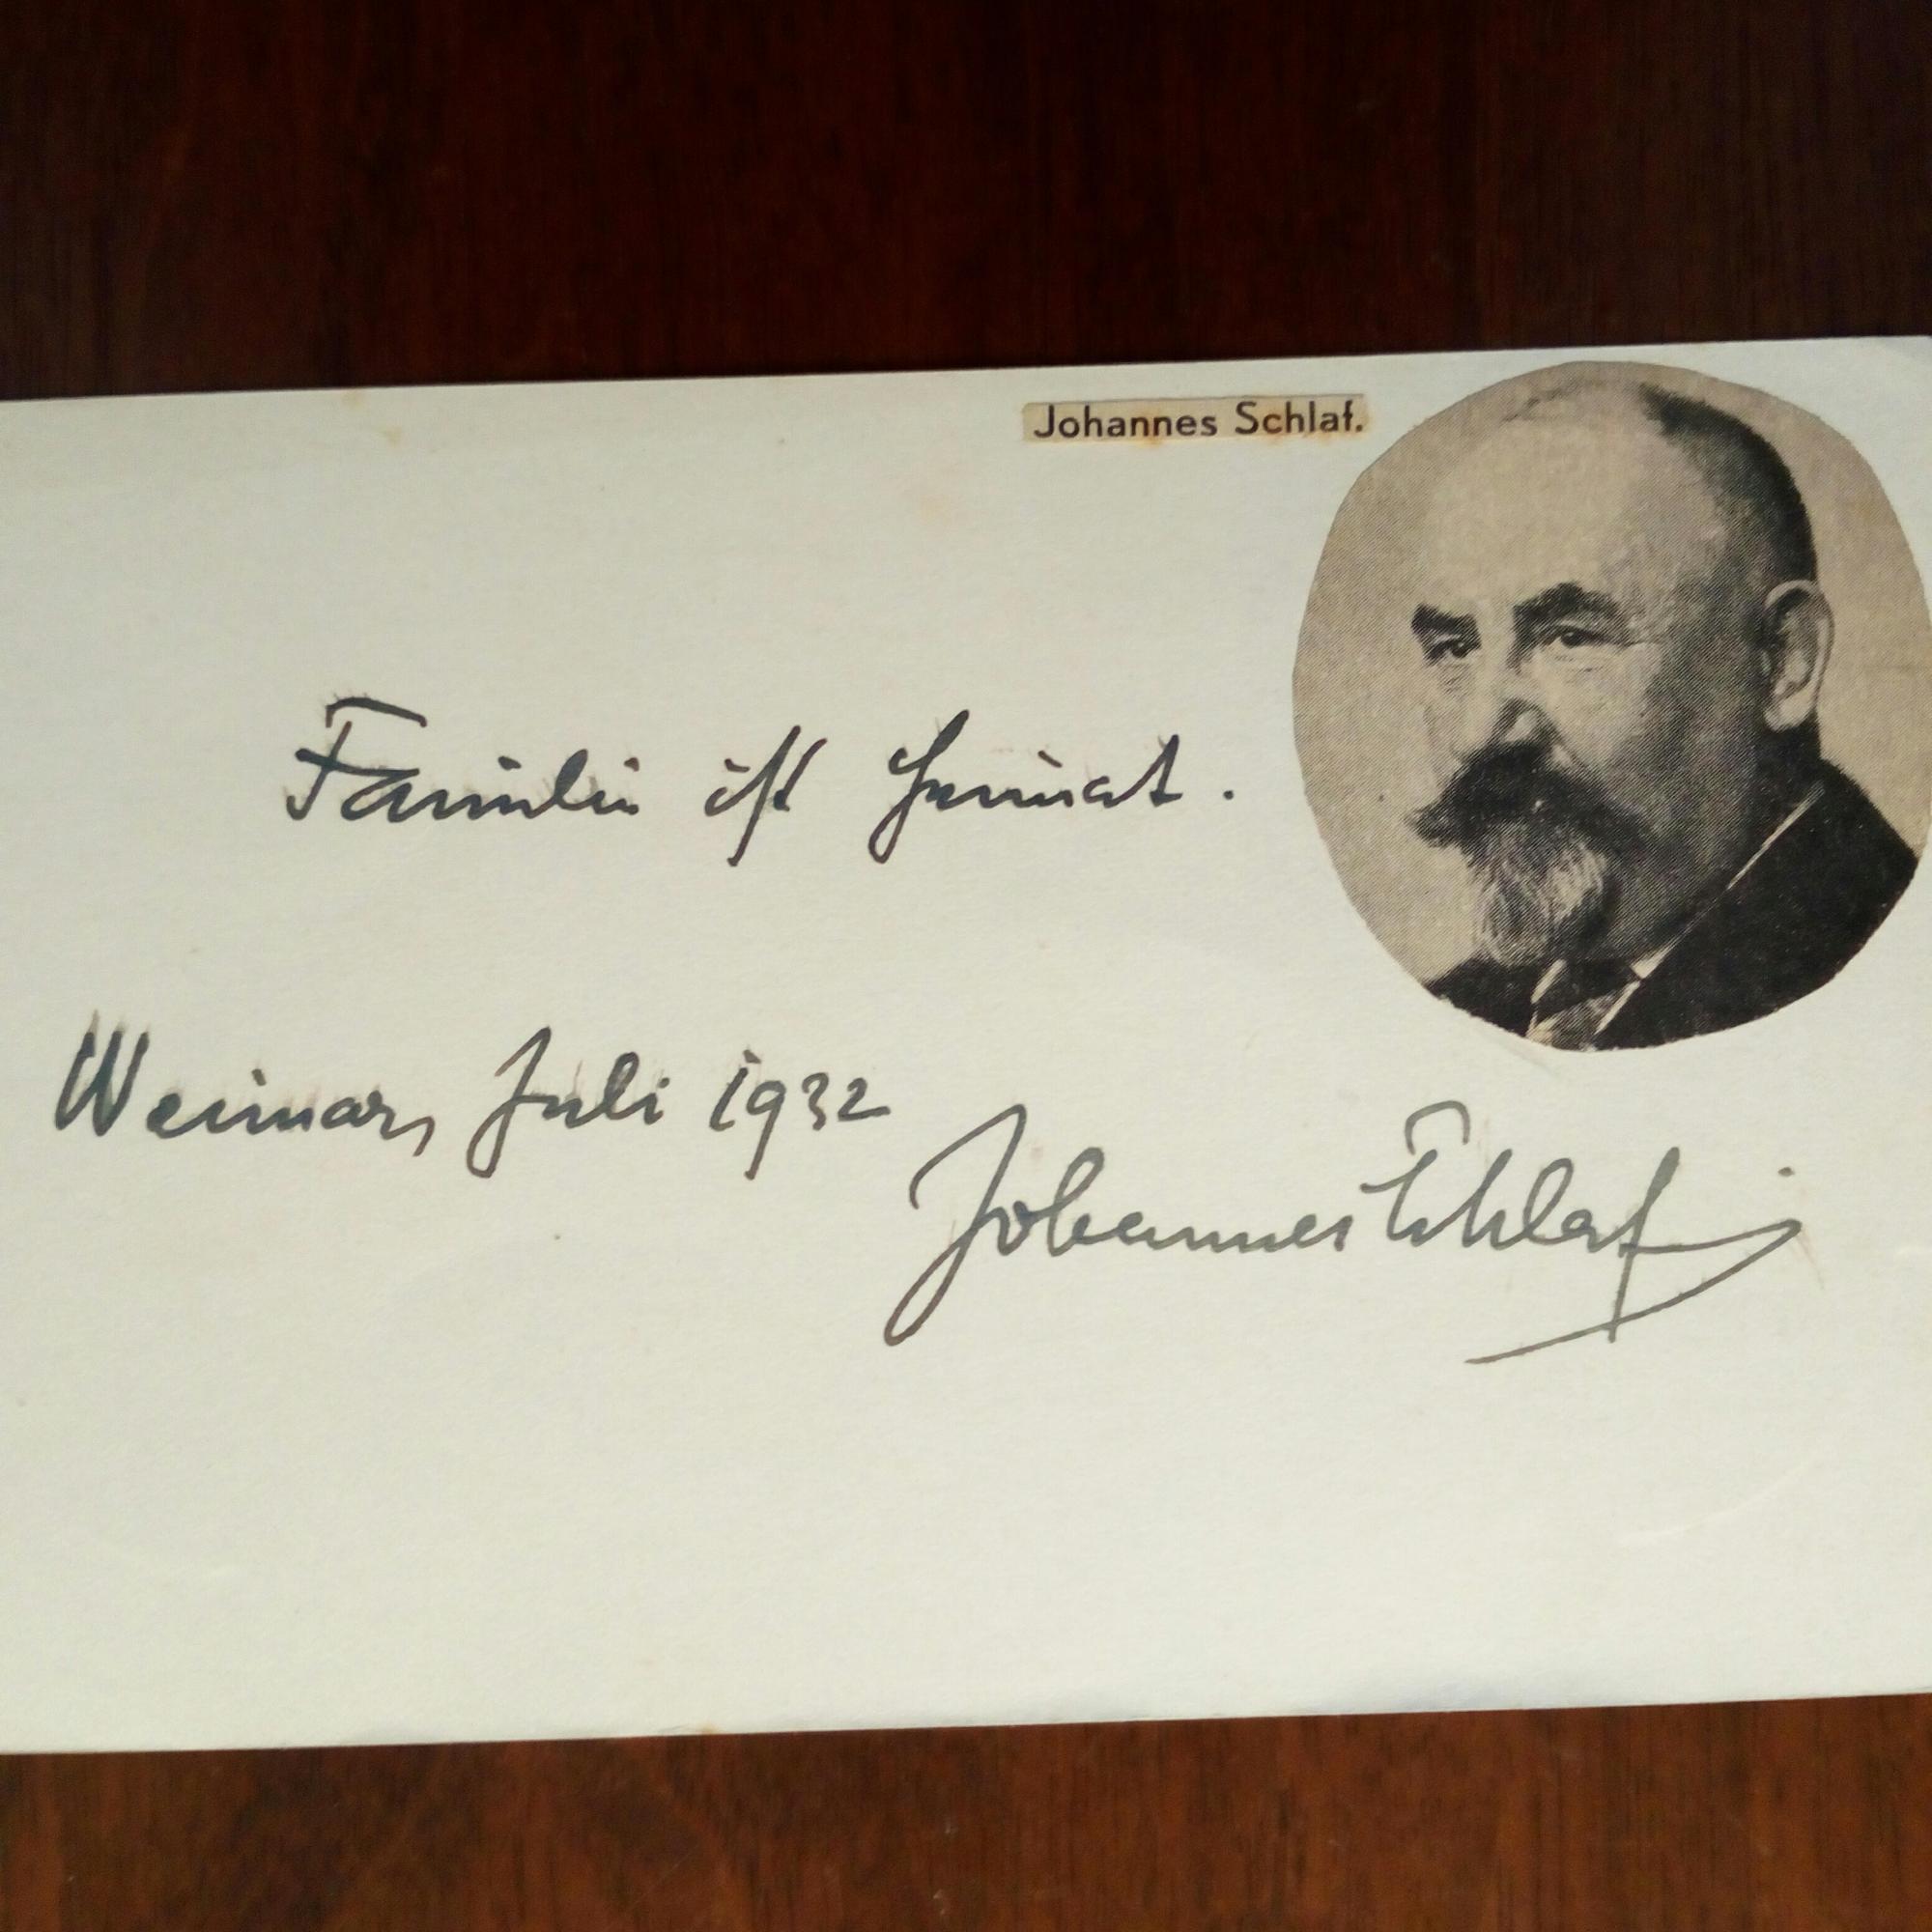 Johannes Schlaf.
Familie ist Heimat.
Weimar, Juli 1932
Johannes Schlaf